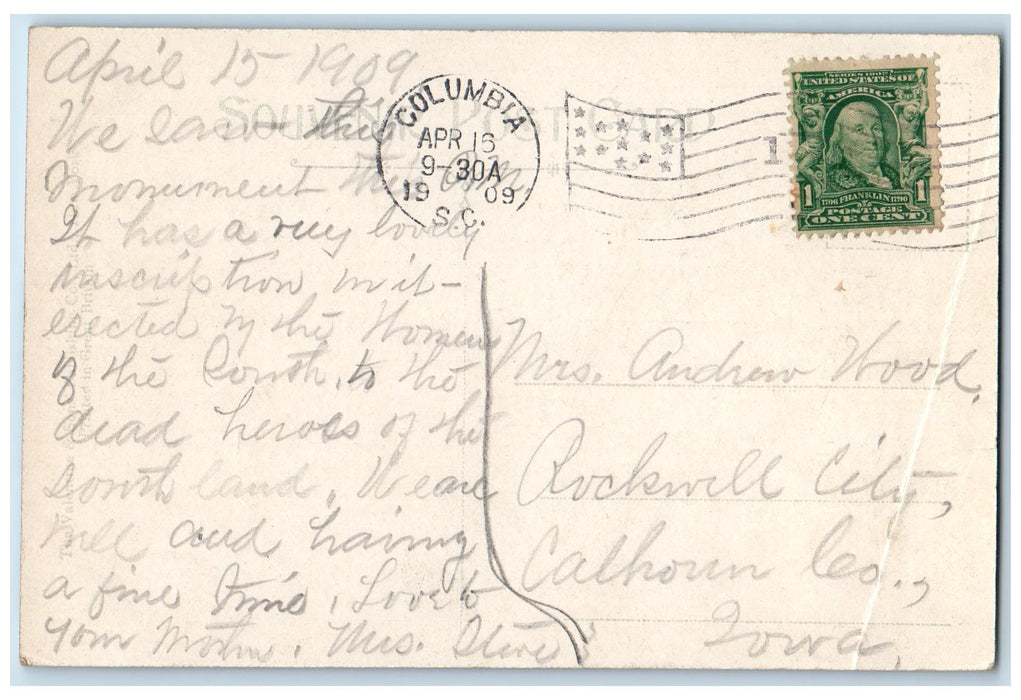 April 15 1909
We saw this
Monument this P.M.
It has a very lovely
inscription on it –
erected by the Women
of the South, to the
dead heroes of the
South land. We are
well and having
a fine time. Love to
your Mother. Mrs.
SOUVENIR POST CARD
COLUMBIA
APR 16
9-30A
1909
S.C.
1
SERIES 1902
UNITED STATES OF
AMERICA
1 1
1706 FRANKLIN 1790
POSTAGE
ONE CENT
Mrs. Andrew Wood,
Rockwell City,
Calhoun Co.,
Iowa,
Printed in Great Britain